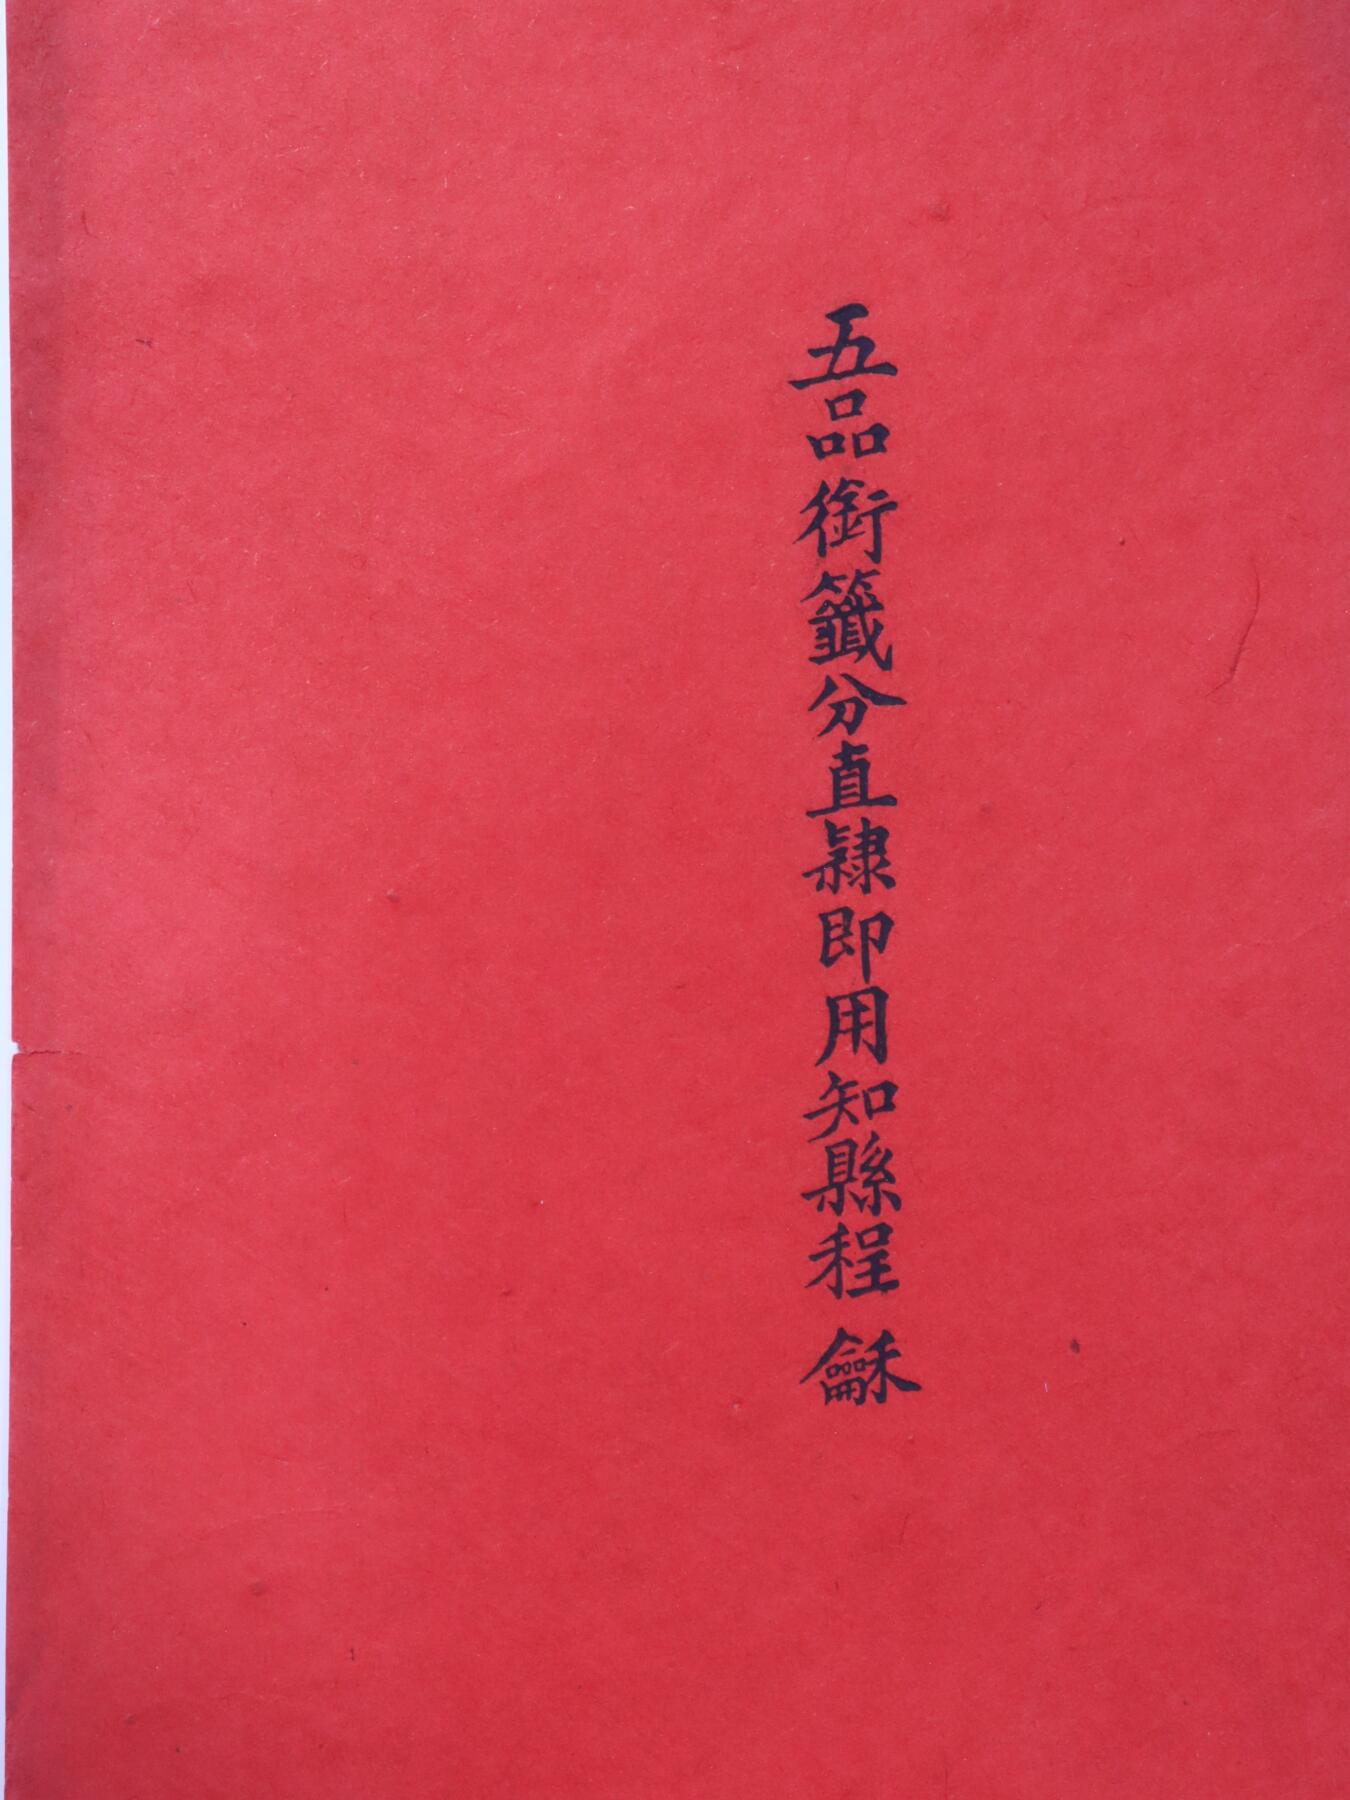 五品銜籤分直隸即用知縣程龢